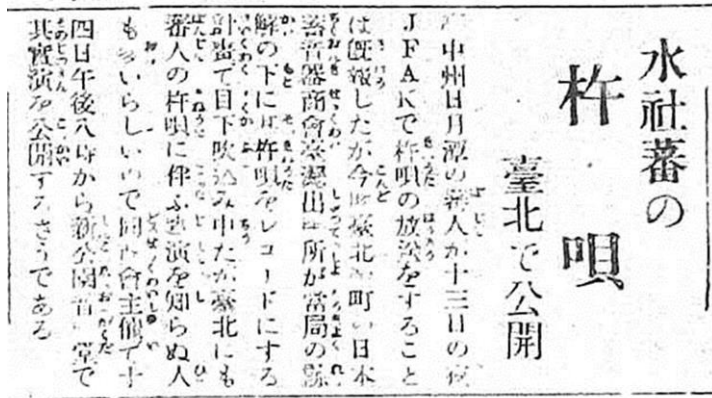 水社蕃の
杵唄
臺北で公開
中州日月潭の蕃人が十三日の夜
JFAKで杵唄の放送をすること
は既報したが今 臺北 町の日本
蓄音器商會臺灣出 所が當局の諒
解の下に 杵唄をレコードにする
計畫で目下吹込み中だが臺北にも
蕃人の杵唄に伴ふ 演を知らぬ人
も多いらしいので同商會主催で十
四日午後八時から新公園音 堂で
其實演を公開するさうである